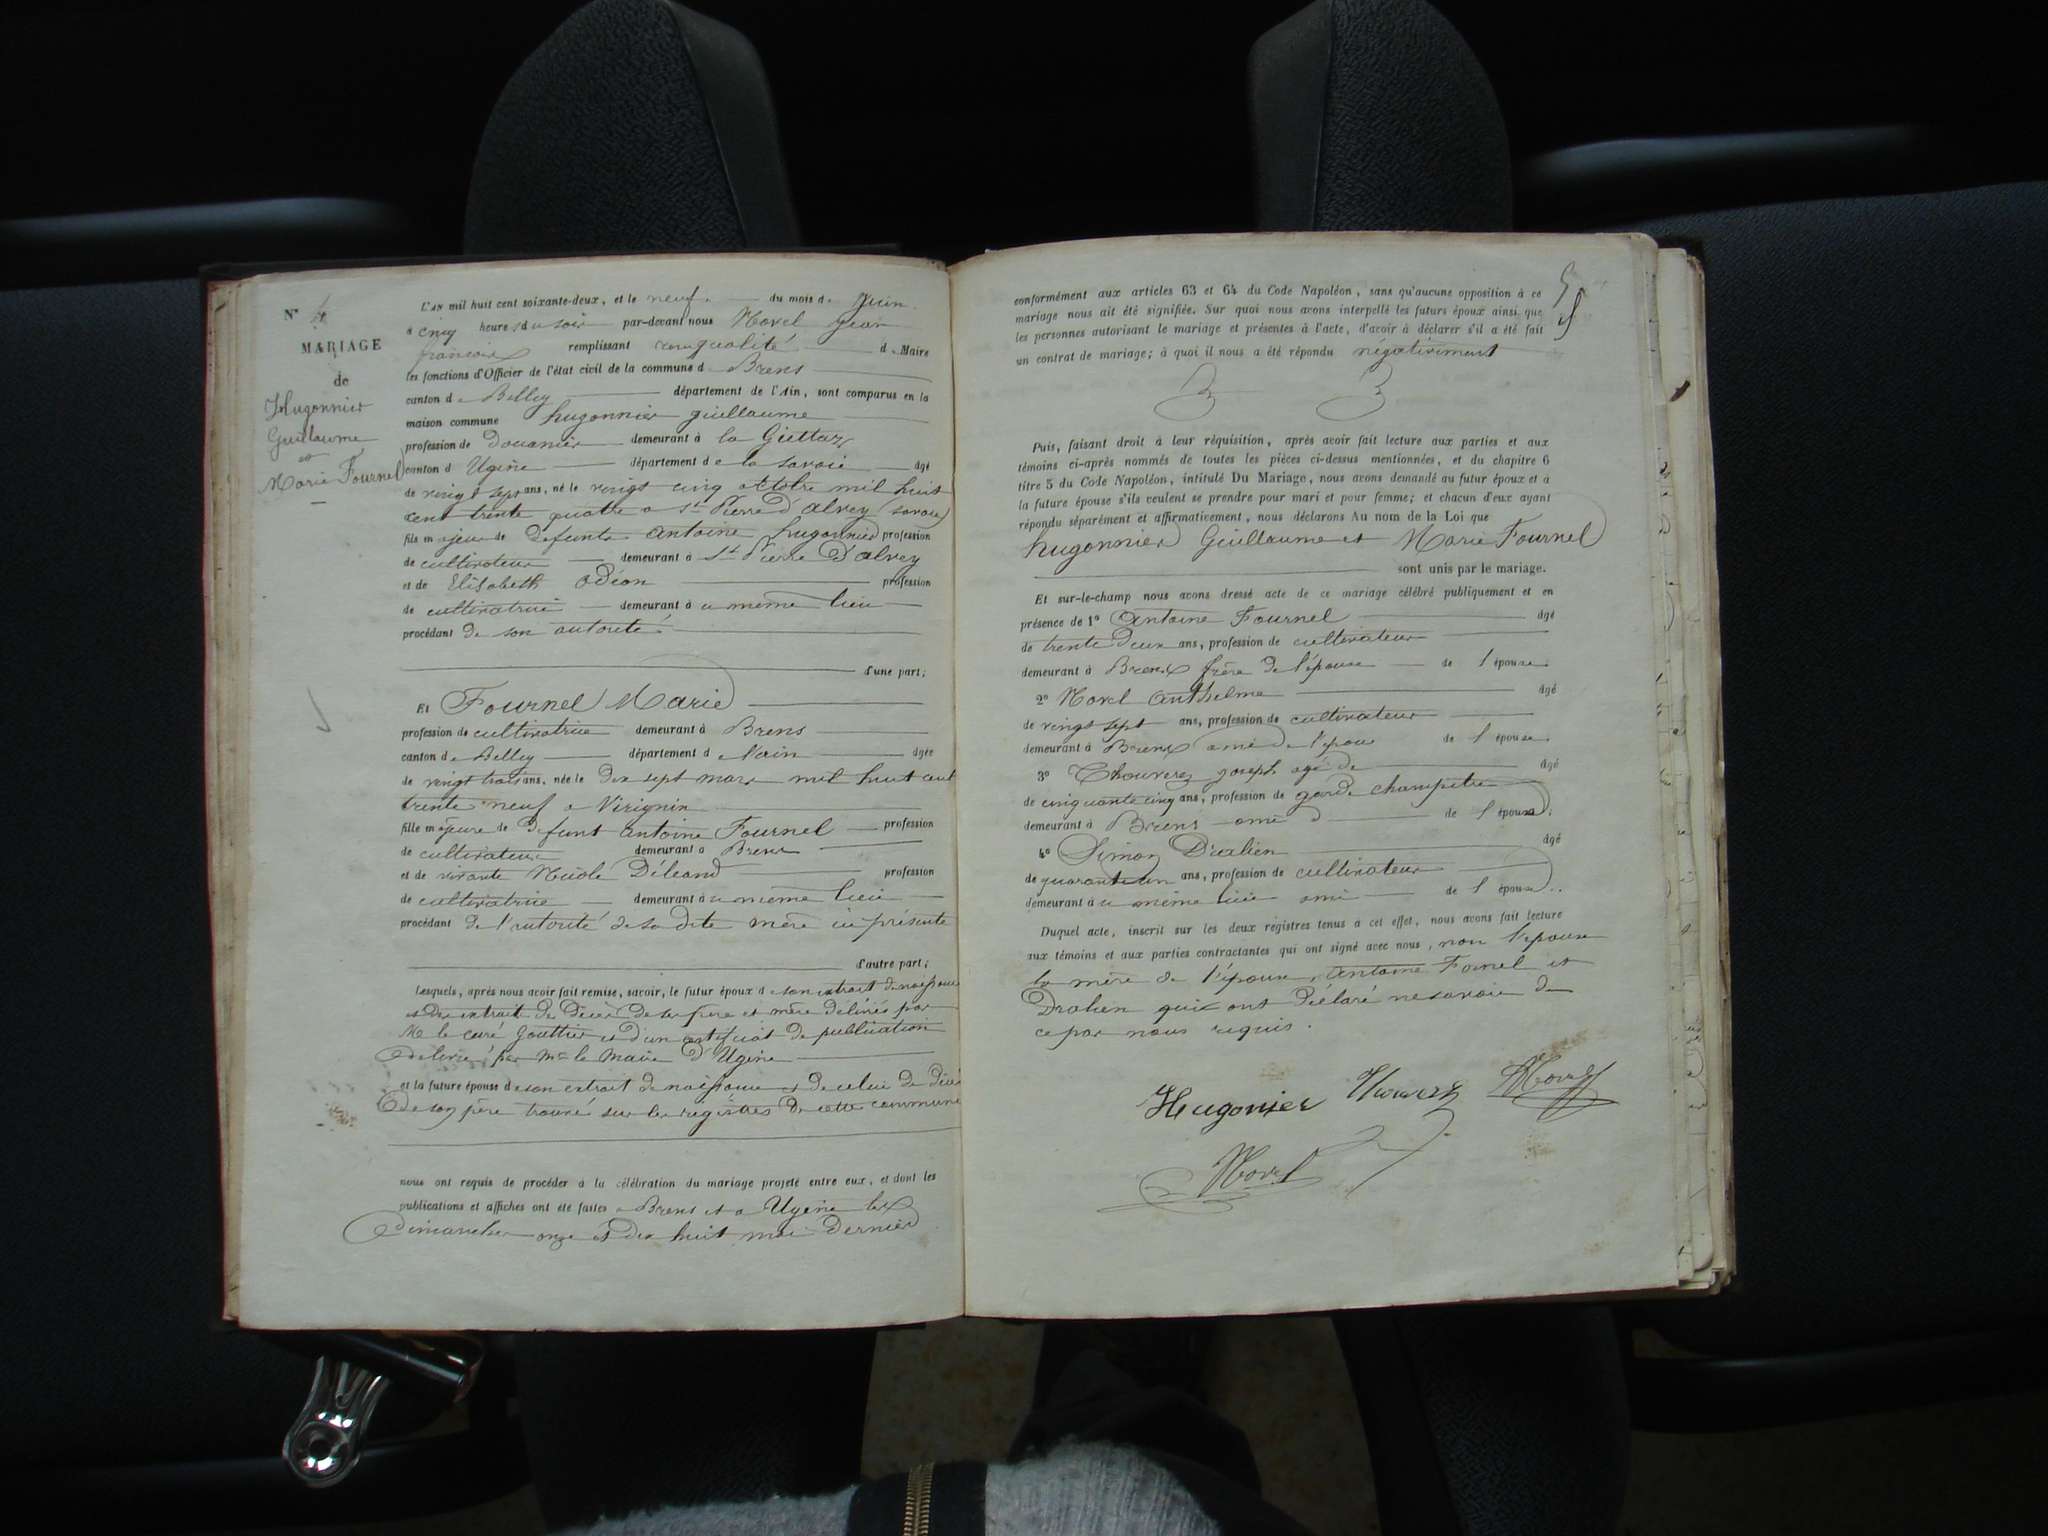 N° 4
MARIAGE
de
Hugonnier
Guillaume
et
Marie Fournel
L'an mil huit cent soixante-deux, et le neuf du mois de juin
à cinq heures du soir par-devant nous Novel jean
françois remplissant en qualité de Maire
les fonctions d'Officier de l'état civil de la commune de Brens
canton de Belley département de l'Ain, sont comparus en la
maison commune hugonnier guillaume
profession de Douanier demeurant à la Giettaz
canton d Ugine département de la savoie âgé
de vingt sept ans, né le vingt cinq octobre mil huit
cent trente quatre a St Pierre d'alvey (savoie)
fils majeur de defunts antoine hugonnier profession
de cultivateur demeurant à St Pierre D'alvey
et de Elisabeth odéon profession
de cultivatrice demeurant à u même lieu
procédant de son autorité
d'une part;
Et Fournel Marie
profession de cultivatrice demeurant à Brens
canton de Belley département de l'ain âgée
de vingt trois ans, née le dix sept mars mil huit cent
trente neuf a Virignin
fille majeure de defunt antoine Fournel profession
de cultivateur demeurant à Brens
et de vivante profession
de cultivatrice demeurant à u même lieu
procédant de l'autorité de sa dite mère ici présente
d'autre part;
Lesquels, après nous avoir fait remise, savoir, le futur époux de son extrait de naissance
et des extraits de Décès de ses père et mère délivrés par
M le curé Gouttier et d'un certificat de publication
délivré par Mr le Maire d'Ugine
et la future épouse de son extrait de naissance et de celui de décès
de son père trouvés sur les régistres de cette commune
nous ont requis de procéder à la célébration du mariage projeté entre eux, et dont les
publications et affiches ont été faites à Brens et a Ugine les
dimanches onze et dix huit mai dernier
5
conformément aux articles 63 et 64 du Code Napoléon, sans qu'aucune opposition à ce
mariage nous ait été signifiée. Sur quoi nous avons interpellé les futurs époux ainsi que
les personnes autorisant le mariage et présentes à l'acte, d'avoir à déclarer s'il a été fait
un contrat de mariage; à quoi il nous a été répondu négativement
Puis, faisant droit à leur réquisition, après avoir fait lecture aux parties et aux
témoins ci-après nommés de toutes les pièces ci-dessus mentionnées, et du chapitre 6
titre 5 du Code Napoléon, intitulé Du Mariage, nous avons demandé au futur époux et à
la future épouse s'ils veulent se prendre pour mari et pour femme; et chacun d'eux ayant
répondu séparément et affirmativement, nous déclarons Au nom de la Loi que
hugonnier Guillaume et Marie Fournel
sont unis par le mariage.
Et sur-le-champ nous avons dressé acte de ce mariage célébré publiquement et en
présence de 1° Antoine Fournel âgé
de trente deux ans, profession de cultivateur
demeurant à Brens frère de l'épouse de l'épouse
2° Novel anthelme âgé
de vingt sept ans, profession de cultivateur
demeurant à Brens ami de l'époux de l'épouse
3° Thouverez joseph agé de âgé
de cinquante cinq ans, profession de garde champetre
demeurant à Brens ami de l'épouse;
4° Simon Dralien âgé
de quarante un ans, profession de cultivateur
demeurant à u même lieu ami de l'épouse.
Duquel acte, inscrit sur les deux régistres tenus à cet effet, nous avons fait lecture
aux témoins et aux parties contractantes qui ont signé avec nous, non l'épouse
la mère de l'épouse, antoine Fornel et
Dralien qui ont déclaré ne savoir de
ce par nous requis.
Hugonier Thouverez Novel
Novel